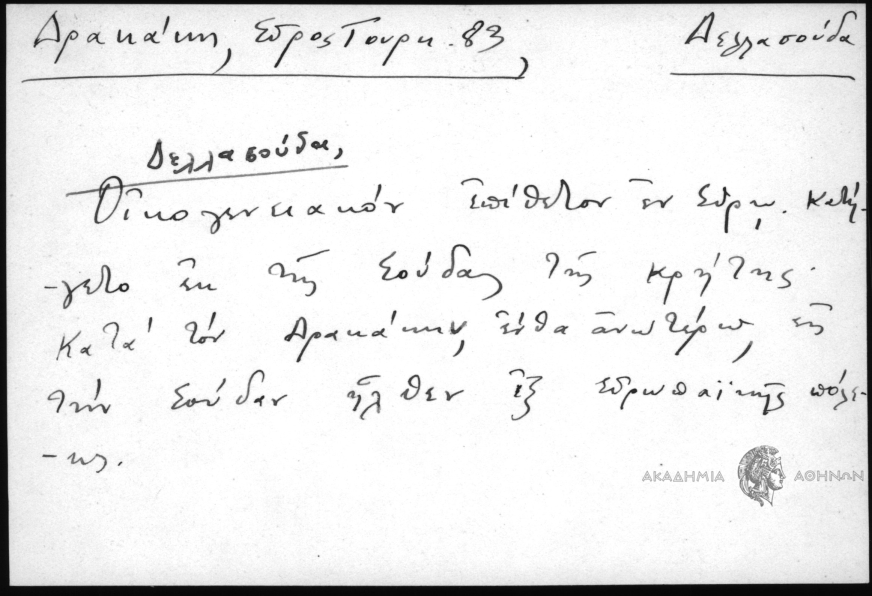 Δρακάκη, Σῦρος Τουρκ. 83, Δελλασούδα
Δελλασούδα,
Οἰκογενειακόν ἐπίθετον ἐν Σύρῳ. Κατή-
-γετο ἐκ τῆς Σούδας τῆς Κρήτης.
Κατά τόν Δρακάκην, ἔνθα ἀνωτέρω, εἰς
τήν Σούδαν ἦλθεν ἐξ εὐρωπαϊκῆς πόλε-
-ως.
ΑΚΑΔΗΜΙΑ ΑΘΗΝΩΝ